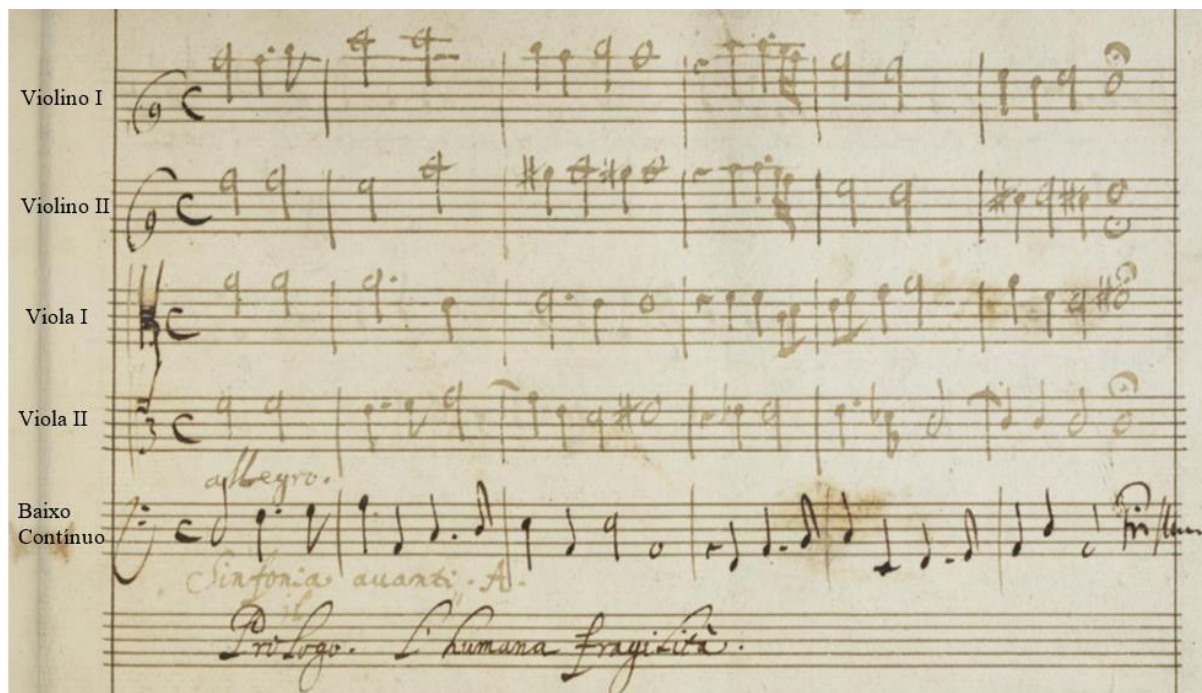 Violino I
Violino II
Viola I
Viola II
allegro.
Baixo
Contínuo
Sinfonia auanti. il
Prologo. L'humana fragilità.